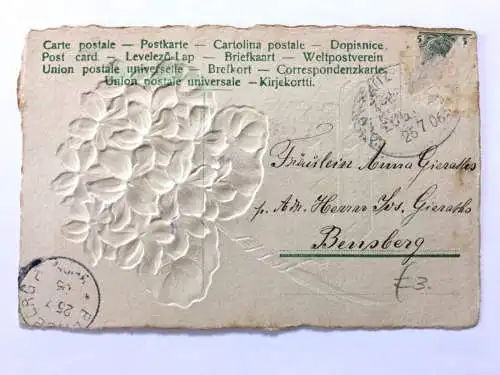 Carte postale — Postkarte — Cartolina postale — Dopisnice
Post card — Levelező-Lap — Briefkaart — Weltpostverein
Union postale universelle — Brefkort — Correspondenzkarte
Union postale universale — Kirjekortti.
25 7 06
Fräulein Anna Gieraths
p. Adr. Herrn Jos. Gieraths
Bensberg
25 7